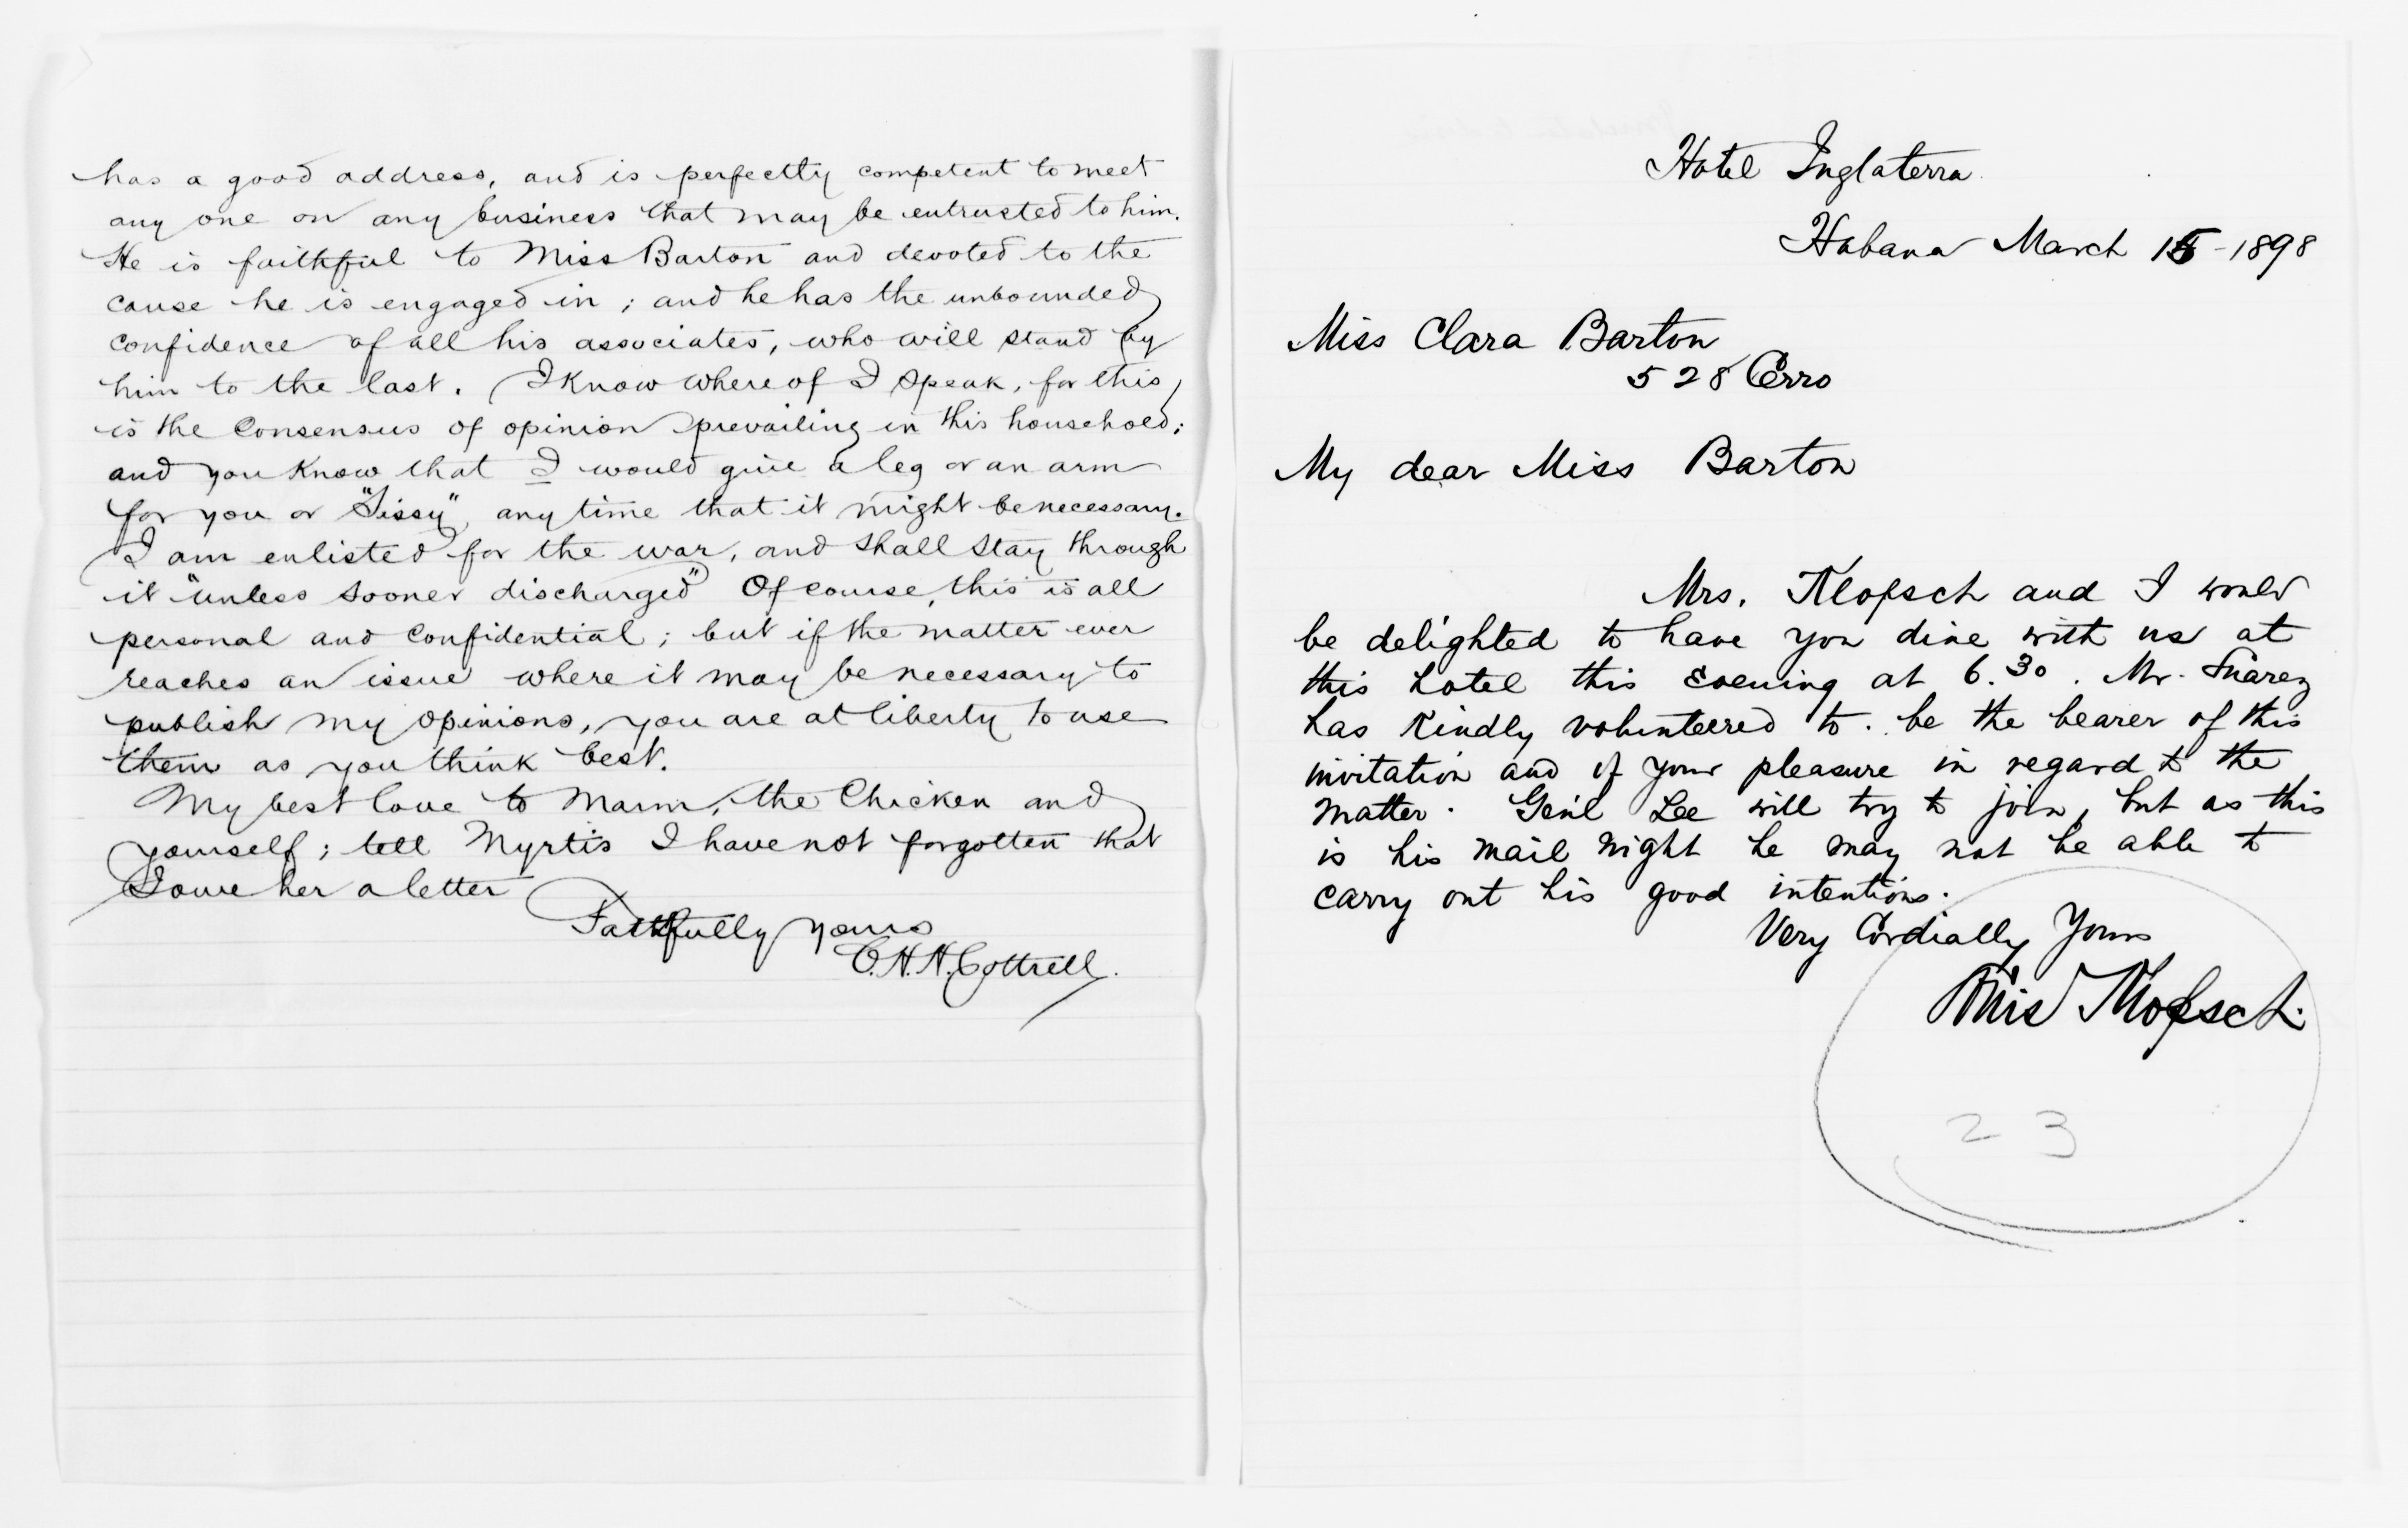 has a good address, and is perfectly competent to meet
any one on any business that may be entrusted to him.
He is faithful to Miss Barton and devoted to the
cause he is engaged in; and he has the unbounded
confidence of all his associates, who will stand by
him to the last. I know whereof I speak, for this
is the consensus of opinion prevailing in this household;
and you know that I would give a leg or an arm
for you or "Sissy", any time that it might be necessary.
I am enlisted for the war, and shall stay through
it "unless sooner discharged" Of course, this is all
personal and confidential; but if the matter ever
reaches an issue where it may be necessary to
publish my opinions, you are at liberty to use
them as you think best.
My best love to Marm, the Chicken and
yourself; tell Myrtis I have not forgotten that
I owe her a letter
Faithfully yours
C.H.H. Cottrell.
Hotel Inglaterra
Habana March 15 - 1898
Miss Clara Barton
528 Cerro
My dear Miss Barton
Mrs. Klopsch and I would
be delighted to have you dine with us at
this hotel this evening at 6.30. Mr. Suarez
has kindly volunteered to be the bearer of this
invitation and of your pleasure in regard to the
matter. Gen'l Lee will try to join, but as this
is his mail night he may not be able to
carry out his good intentions.
Very Cordially Yours
Klopsch.
23